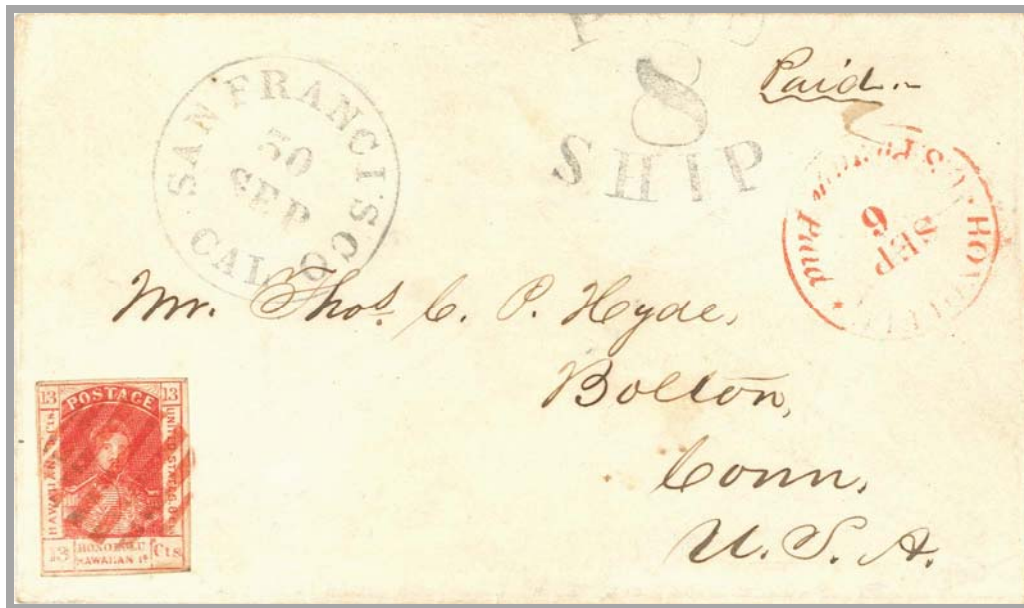 SAN FRANCISCO
CAL.
30
SEP
PAID
8
SHIP
Paid
U.S. Postage Paid
SEP
6
Mr. Thos. C. P. Hyde,
Bolton,
Conn.
U. S. A.
13 POSTAGE 13
HAWAIIAN 5 Cts
UNITED STATES 8 Cts
13 HONOLULU Cts
HAWAIIAN Is